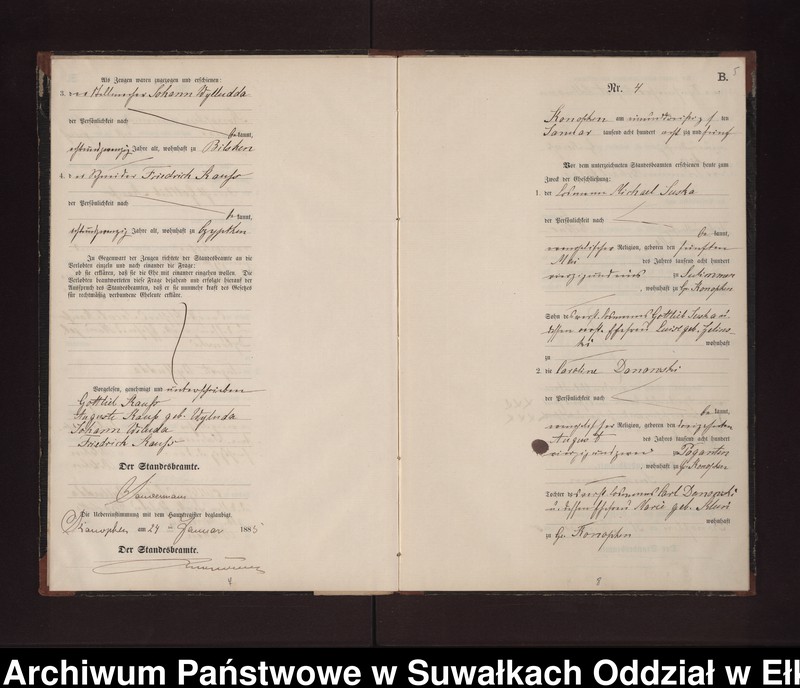 Als Zeugen waren zugezogen und erschienen:
3. der Stellmacher Johann Wylludda
der Persönlichkeit nach
bekannt,
achtundzwanzig Jahre alt, wohnhaft zu Bilsken
4. der Schneider Friedrich Kauss
der Persönlichkeit nach
bekannt,
Jahre alt, wohnhaft zu
In Gegenwart der Zeugen richtete der Standesbeamte an die
Verlobten einzeln und nach einander die Frage:
ob sie erklären, daß sie die Ehe mit einander eingehen wollen. Die
Verlobten beantworteten diese Frage bejahend und erfolgte hierauf der
Ausspruch des Standesbeamten, daß er sie nunmehr kraft des Gesetzes
für rechtmäßig verbundene Eheleute erkläre.
Vorgelesen, genehmigt und unterschrieben
Gottlieb Kauss
Auguste Kauss geb. Wyluda
Johann Wiluda
Friedrich Kauss
Der Standesbeamte.
Die Uebereinstimmung mit dem Hauptregister beglaubigt.
Konopken am 29 ten Januar 1885
Der Standesbeamte.
4
B.
5
Nr. 4
Konopken am ten
Januar tausend acht hundert achtzig und fünf
Vor dem unterzeichneten Standesbeamten erschienen heute zum
Zweck der Eheschließung:
1. der Losmann Michael Suska
der Persönlichkeit nach
bekannt,
evangelischer Religion, geboren den fünften
Mai des Jahres tausend acht hundert
vierzig und eins zu
, wohnhaft zu Gr. Konopken
Sohn des verst. Losmanns Gottlieb Suska u.
dessen verst. Ehefrau Luise geb.
wohnhaft
zu
2. die Caroline Danowski
der Persönlichkeit nach
bekannt,
evangelischer Religion, geboren den dreizehnten
August des Jahres tausend acht hundert
vierzig und zwei zu Poganten
, wohnhaft zu Gr. Konopken
Tochter des verst. Losmanns Carl Danowski
u. dessen Ehefrau Marie geb.
wohnhaft
zu Gr. Konopken
8
Archiwum Państwowe w Suwałkach Oddział w Ełk